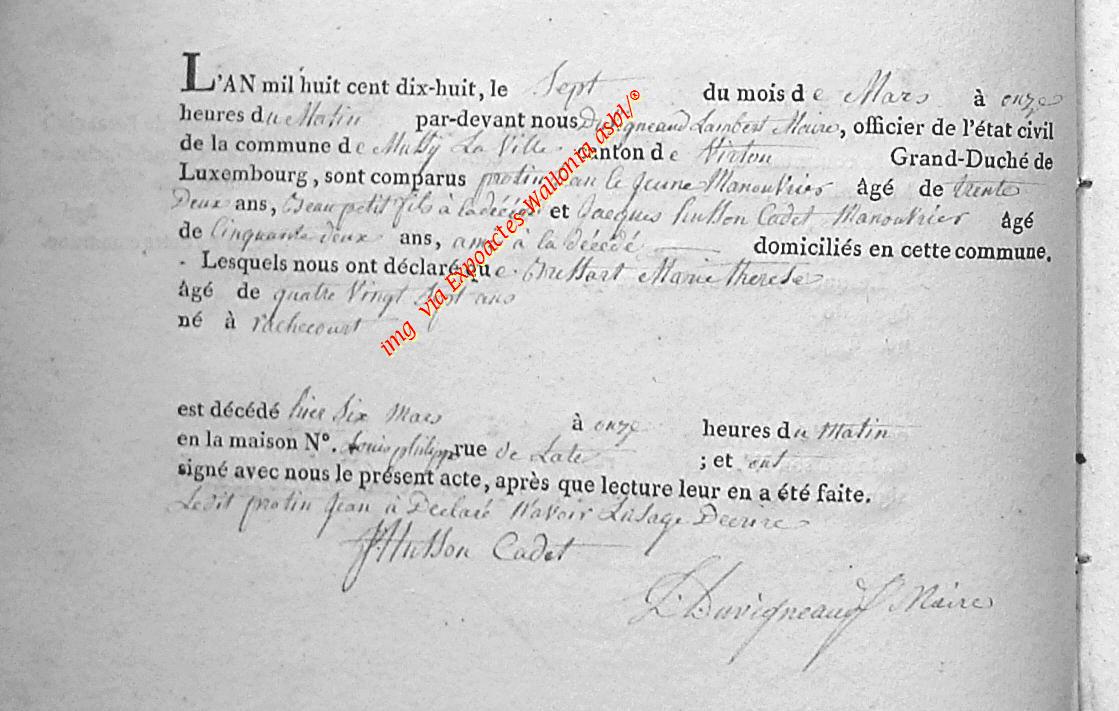 L'AN mil huit cent dix-huit, le Sept du mois de Mars à onze
heures du Matin par-devant nous Duvigneaud Lambert Maire, officier de l'état civil
de la commune de Mussy La Ville canton de Virton Grand-Duché de
Luxembourg, sont comparus protin Jean le Jeune Manouvrier âgé de trente
Deux ans, Beau petit fils à la décédé et Jacques husson Cadet Manouvrier âgé
de Cinquante deux ans, ami à la décédé domiciliés en cette commune.
Lesquels nous ont déclaré que Marie Therese
âgé de quatre Vingt Sept ans
né à rachecourt
est décédé hier Six Mars à onze heures du Matin
en la maison N°. Louis philipp rue de Late ; et ont
signé avec nous le présent acte, après que lecture leur en a été faite.
Ledit protin Jean à Déclaré N'avoir Lusage Décrire
J Husson Cadet
L Duvigneaud Maire
img via Expoactes-Wallonia asbl/®